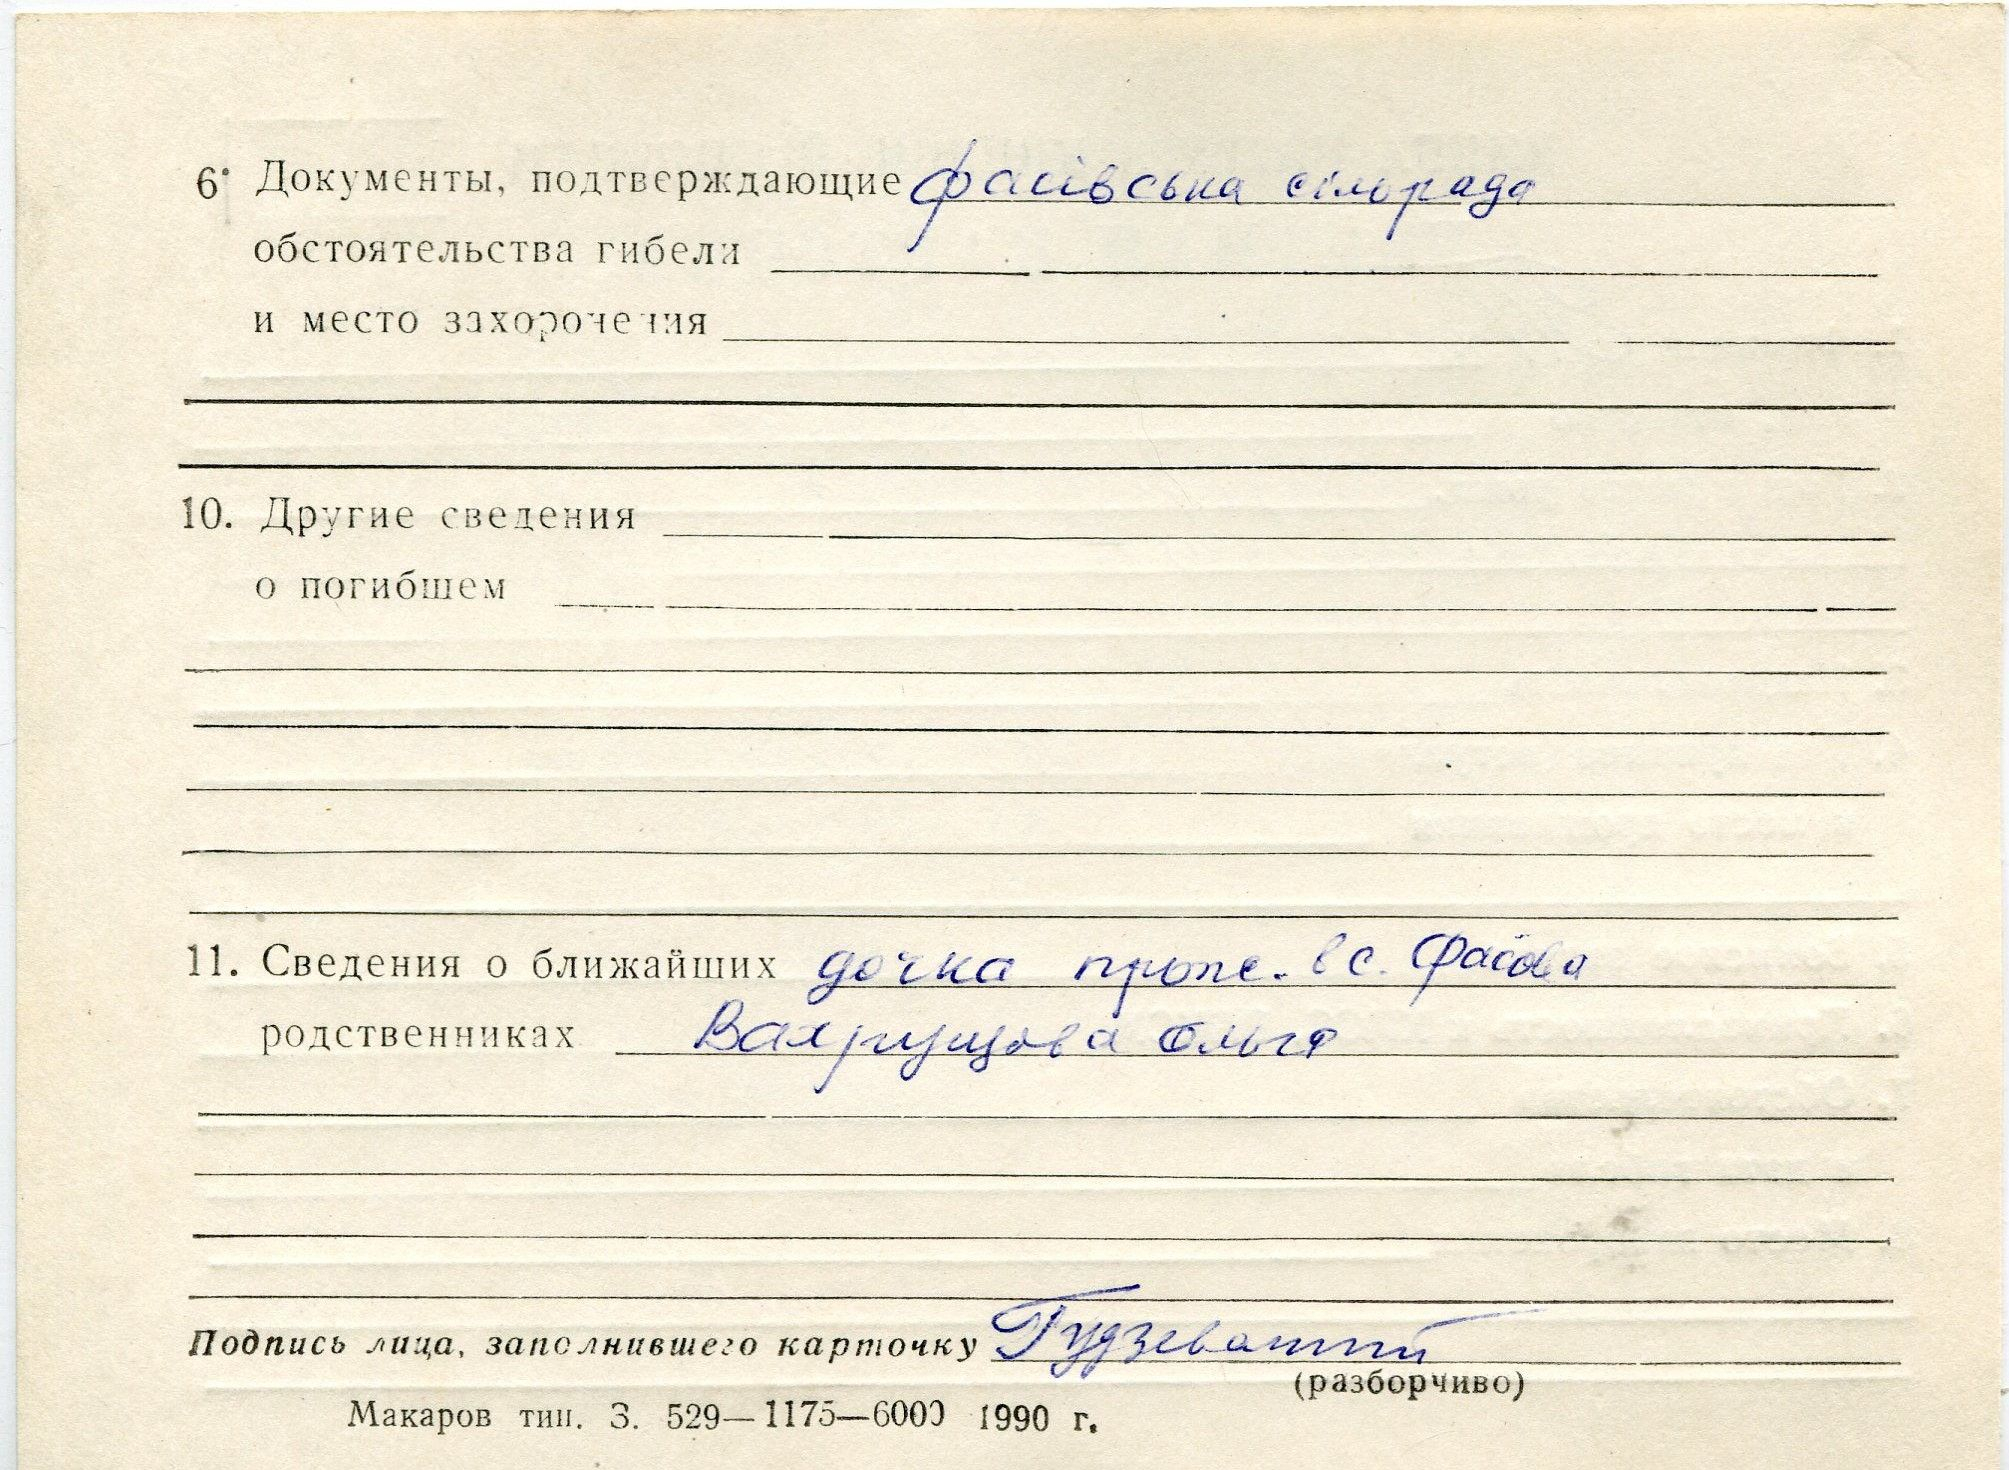 6. Документы, подтверждающие Фасівська сільрада
обстоятельства гибели
и место захоронения
10. Другие сведения
о погибшем
11. Сведения о ближайших дочка прож. в с. Фасова
родственниках Вахрущова Ольга
Подпись лица, заполнившего карточку
(разборчиво)
Макаров тип. З. 529—1175—6000 1990 г.